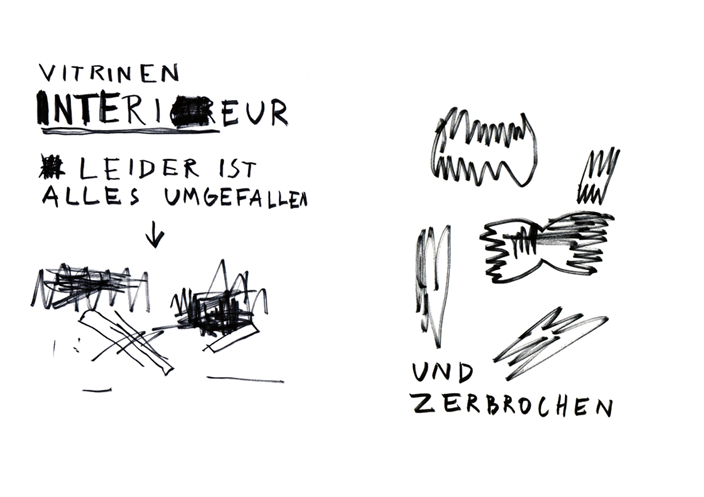 VITRINEN
INTERIEUR
LEIDER IST
ALLES UMGEFALLEN
UND
ZERBROCHEN